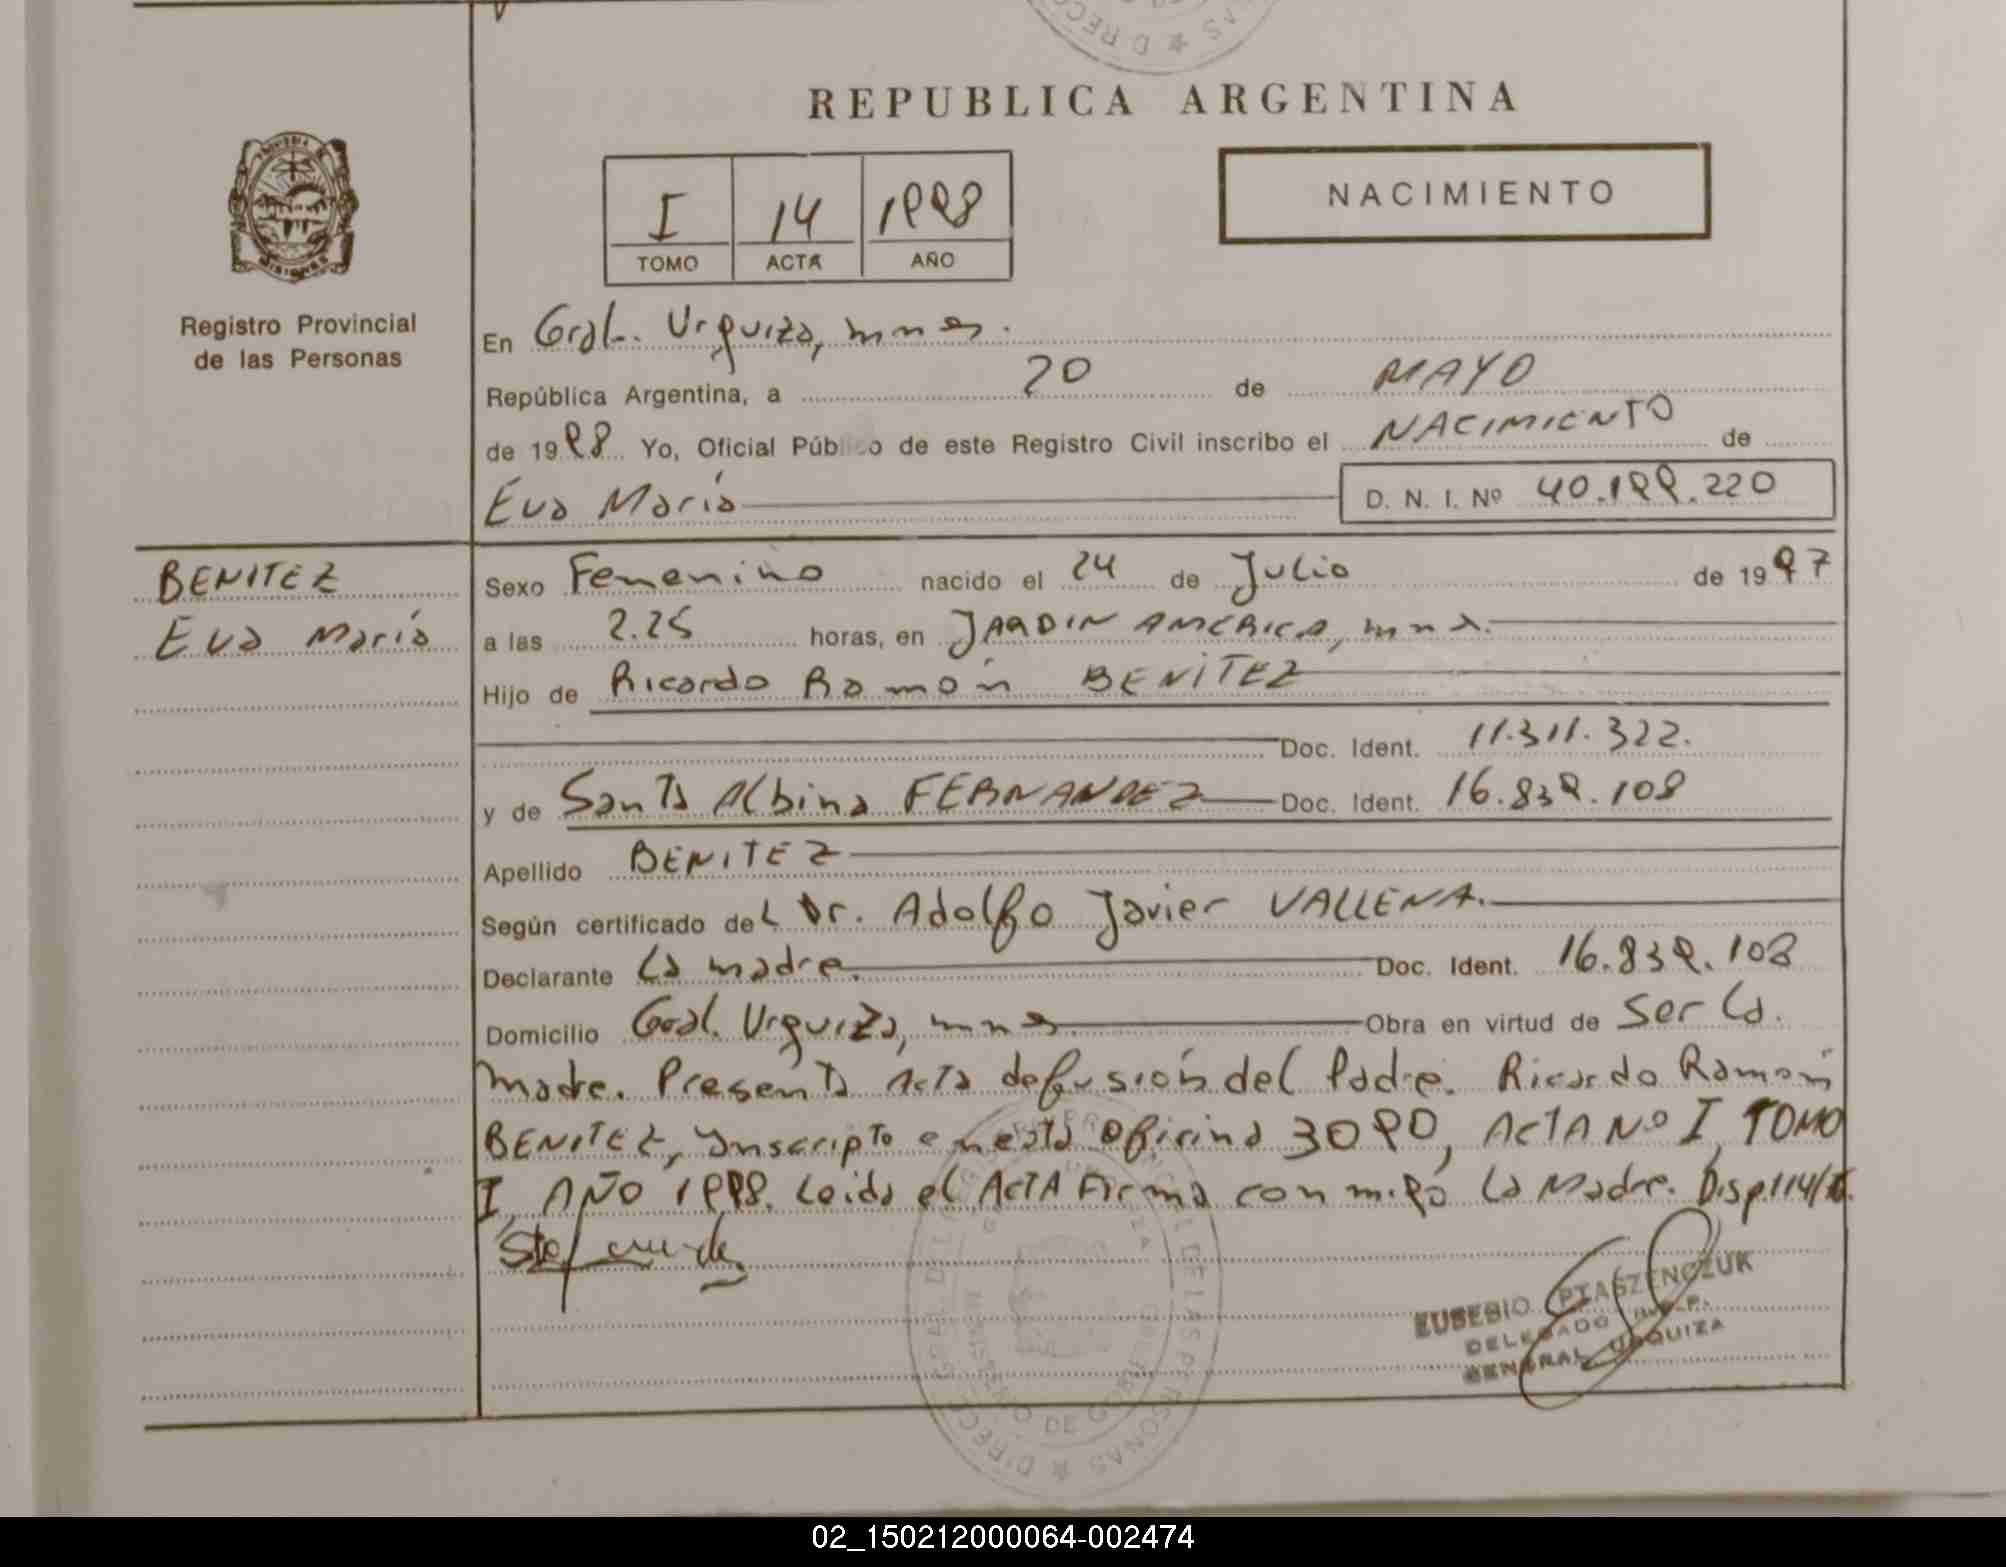 REPUBLICA ARGENTINA
NACIMIENTO
I 14 1998
TOMO ACTA AÑO
Registro Provincial
de las Personas
En Gral. Urquiza, mnes.
República Argentina, a 20 de MAYO
de 1998 Yo, Oficial Público de este Registro Civil inscribo el NACIMIENTO de
Eva María D. N. I. Nº 40.199.220
BENITEZ
Eva María
Sexo Femenino nacido el 24 de Julio de 1997
a las 2.25 horas, en JARDIN AMERICA, mns.
Hijo de Ricardo Ramón BENITEZ
Doc. Ident. 11.311.322.
y de Santa Albina FERNANDEZ Doc. Ident. 16.839.108
Apellido BENITEZ
Según certificado del Dr. Adolfo Javier VALLENA.
Declarante La madre. Doc. Ident. 16.839.108
Domicilio Gral. Urquiza, mnes. Obra en virtud de Ser la
madre. Presenta Acta defusión del Padre. Ricardo Ramón
BENITEZ, Inscripto en esta Oficina 3090, ACTA Nº I, TOMO
I, AÑO 1998. Leida el ACTA Firma con migo La Madre. Disp. 114/
EUSEBIO PTASZENCZUK
DELEGADO R.P.P.
GENERAL URQUIZA
02_150212000064-002474